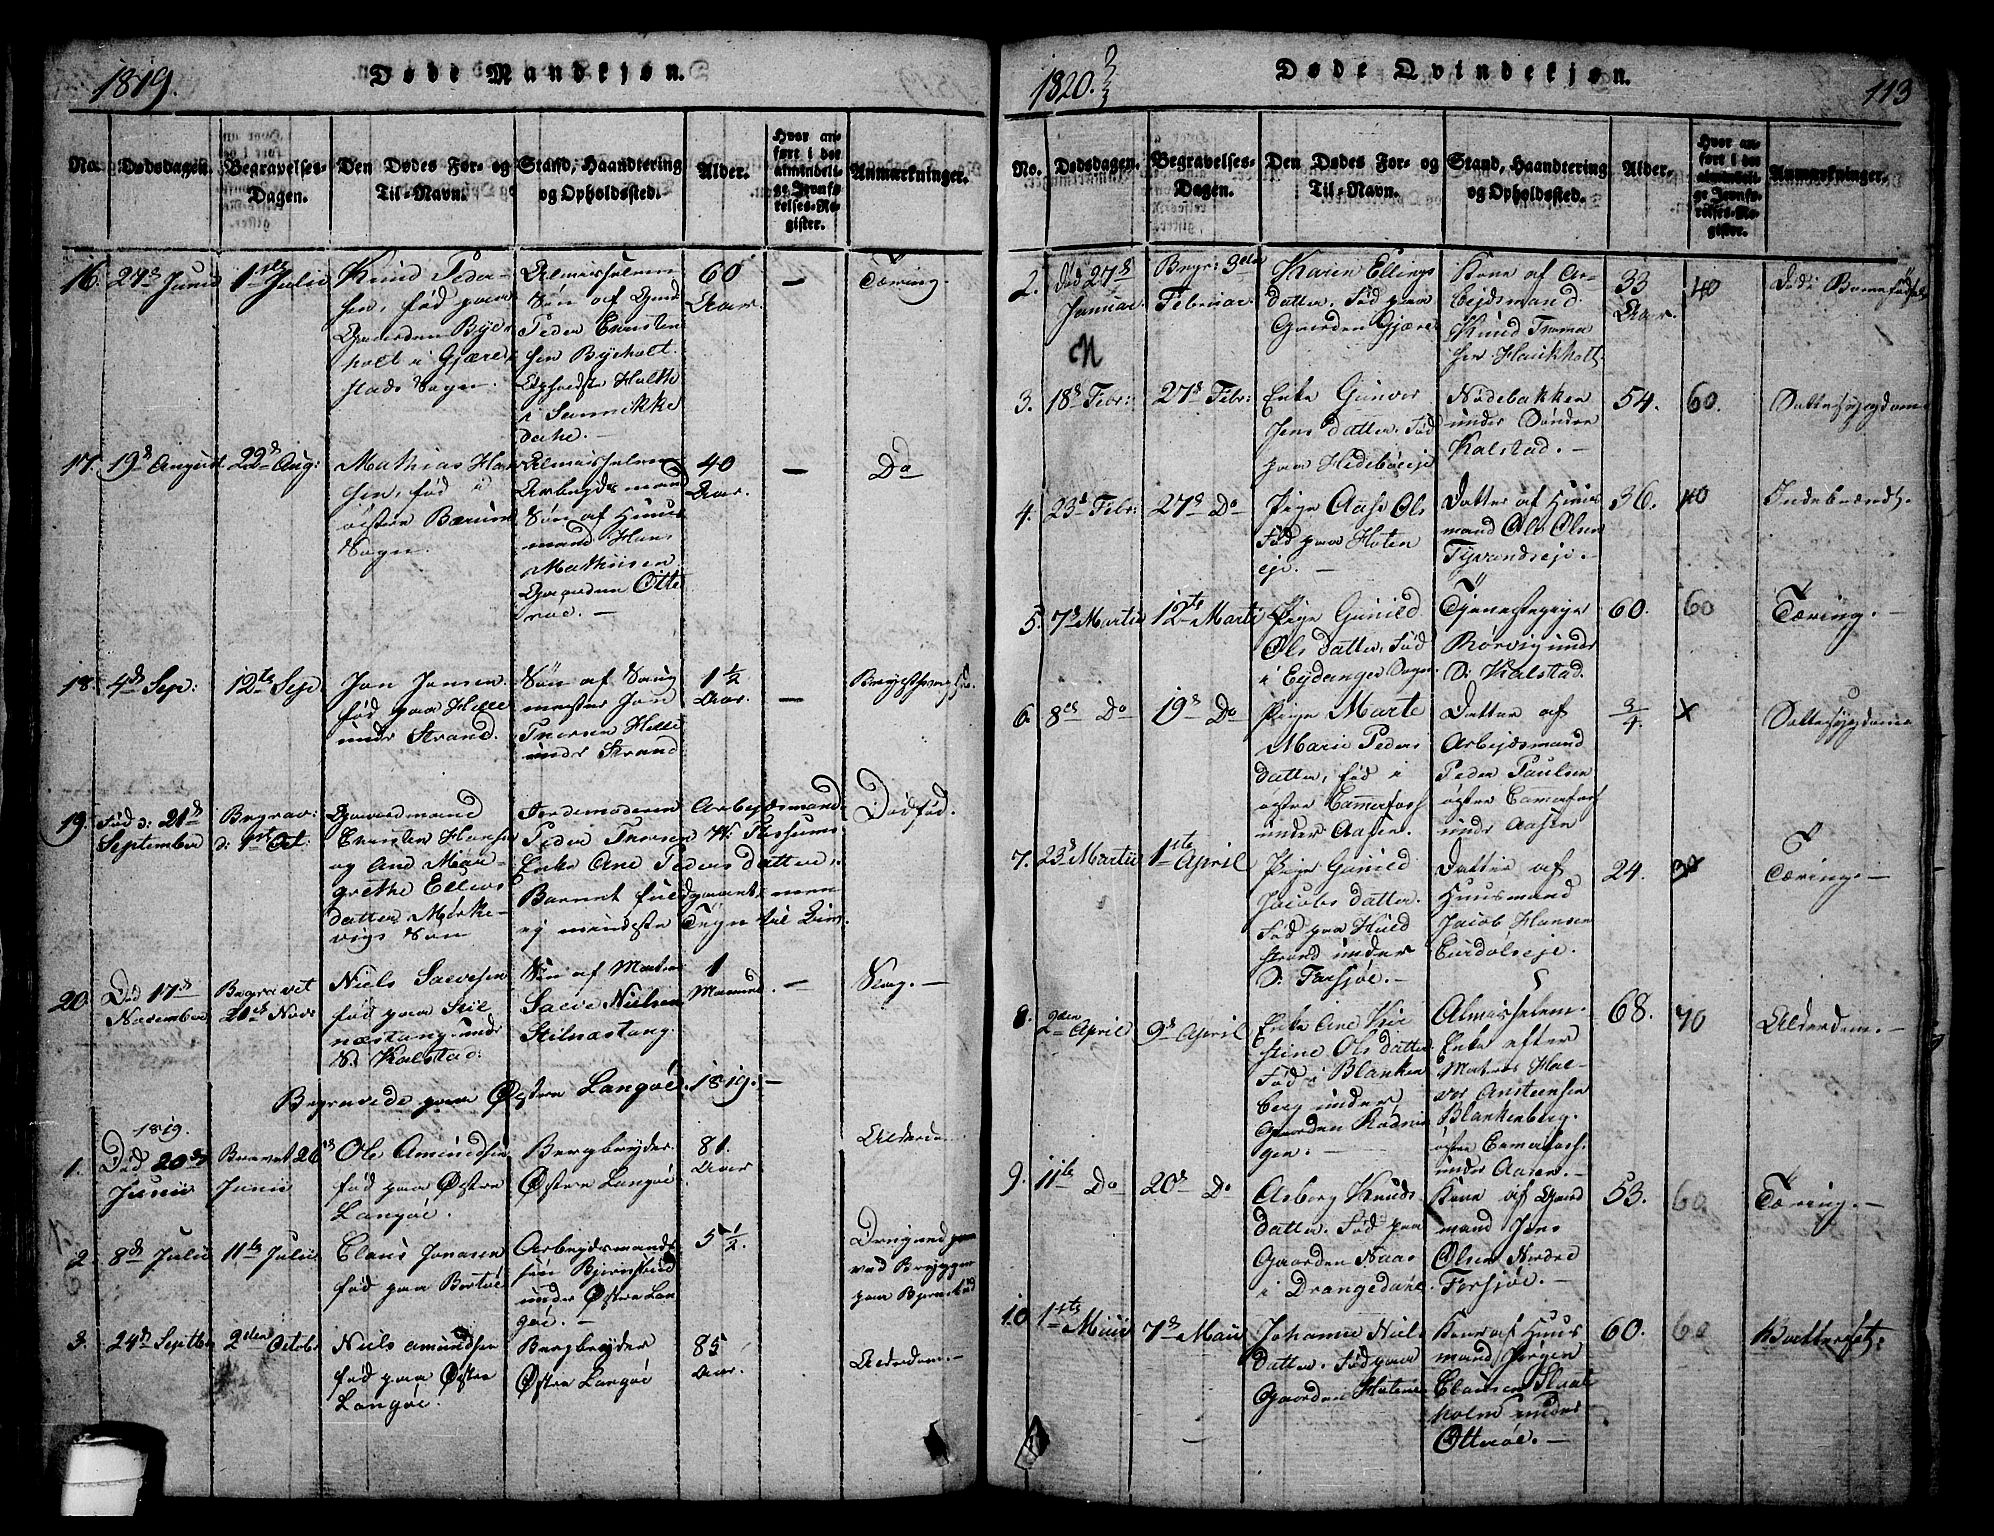 1819.
Døde Mandkjøn.
No.
Dødsdagen.
Begravelses-
Dagen.
Den Dødes For- og
Til-Navn.
Stand, Haandtering
og Opholdssted.
Alder.
Hvor an-
ført i det
almindeli-
ge Jevnfø-
relses-Re-
gister.
Anmærkninger.
16.
24de Junii
1ste Julii
Knud Peder-
sen, fød paa
Gaarden Bye-
holt i Gjære-
stads Sogn.
Almisselem
Søn af Gmd
Peder Evensten
sen Byeholt.
Opholdste Holth
i Sannikke
dahl.
60
Aar.
—
Tæring.
17.
19de August
22de Aug:
Mathias Han
sen, fød i
øistre Bærum
Sogn.
Almisselem
Arbeydsmand
Søn af Huus
mand Hans
Mathiisen
Gaarden Otte
røe. —
40
Aar.
—
Do
18.
4de Sep:
12te Sep
Jon Jonsen
fød paa Helle
under Strand.
Søn af Saug
mester Jon
Thorsen Helle
under Strand
1 1/2
Aar.
—
19.
Fød d: 21de
September
Begrav:
d: 1ste Oct:
Gaardmand
Evensten Hansen
og Ane Mar-
grethe Ellevs
datter Mørke-
vigs Søn
Jordemoderen Arbejdsmand
Peder Thorsen W: Fossums
Enke Ane Peders datter.
Barnet fuldbaaret, men
ej mindste Tegn til Liv.
Dødfød.
20.
Død 17de
November
Begravet
21de Nov:
Niels Saevesen
fød paa Stil
næstang und
S: Kalstad:
Søn af Matros
Saeve Nielsen
Stilnæstang.
1
Maaned.
—
Slag. —
Begravede paa Østre Langøe. 1819. —
1819.
1.
Død 20de
Junii
Bravet 26de
Junii
Ole Amundsen
fød paa Østre
Langøe.
Bergbryder
Østre Langøe
81.
Aar
Alderdom
2.
8de Julii
11te Julii
Claus Jonasen
fød paa Bortøe
Arbeydsmands
søn Bjørnstrud
under Østre Lan
gøe. —
5 1/2.
ved Bryggen
3.
24de Septbr
2den Octob.
Niels Amundsen
fød paa Østre
Langøe.
Bergbryder
Østre Langøe
85
Aar.
Alderdom. —
1820.
Døde Qvindekjøn.
113
No.
Dødsdagen.
Begravelses-
Dagen.
Den Dødes For- og
Til-Navn.
Stand, Haandtering
og Opholdssted.
Alder.
Hvor an-
ført i det
almindeli-
ge Jevnfø-
relses-Re-
gister.
Anmærkninger.
2.
Død 27de
Januar
Begr: 3die
Februar
Karen Ellings
datter. Fød paa
Gaarden Gjære
Kone af Ar-
beidsmand
Knud Tomma
sen Haukholt.
33
Aar.
40
Død i Barnefødsel
3.
18de Febr:
27de Febr:
Enke Gunvor
Jens datter. Fød
paa Hedebøeeje
Nødebakken
under Søndre
Kalstad. —
54.
60.
Sottesygdom
4.
23de Febr:
27de Do
Pige Aase Ols
Fød paa Hoten
eje. —
Datter af Huus
mand Ole Olsen
Tyvandseje. —
36.
40
Indebrændt.
5.
7de Martii
12te Marti
Pige Gunild
Ols datter. Fød
i Eydanger Sogn
Tjenestepige
Rørvig under
S: Kalstad.
60.
60
Tæring. —
6.
8de Do
19de Do
Pige Marte
Marie Peders
datter, fød i
østre Cammerfoss
under Aasen.
Datter af
Arbejdsmand
Peder Paulsen
østre Cammerfoss
under Aasen
3/4
x
Sottesygdom
7.
23de Martii
1ste April
Pige Gunild
Jacobs datter.
Fød paa Huld
strand under
S: Forsjøe. —
Datter af
Huusmand
Jacob Hansen
Eurdalseje.
24.
30
Tæring —
8.
2den April
9de April
Enke Ane Kir
stine Ols datter
Fød i Blanken
berg under
Gaarden Kodnin
gen. —
Almisselem.
Enke efter
Matros Hal-
vor Anstensen
Blankenberg.
østre Camerfoss.
under Aasen. —
68.
70
Alderdom. —
9.
11te Do
20de Do
Asborg Knuds-
datter. Fød paa
Gaarden Naas
i Drangedahl
Kone af Gaard
mand Jens
Olsen Nordre
Forsjøe. —
53.
60.
Tæring. —
10.
1ste Maii
7de Maii
Johanne Niels
datter. Fød paa
Gaarden Hoten
Kone af Huus
mand Jørgen
Clausen Slaat
holm under
Otterøe. —
60.
60